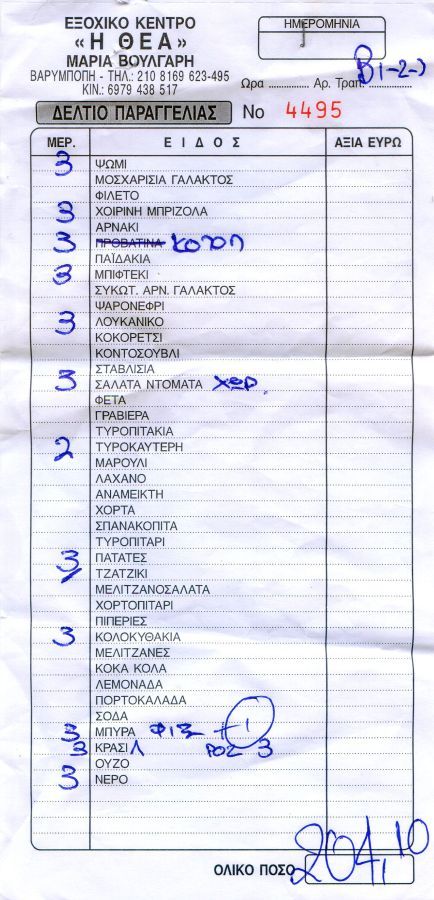 ΕΞΟΧΙΚΟ ΚΕΝΤΡΟ
«Η ΘΕΑ»
ΜΑΡΙΑ ΒΟΥΛΓΑΡΗ
ΒΑΡΥΜΠΟΠΗ - ΤΗΛ: 210 8169 623-495
ΚΙΝ.: 6979 438 517
ΗΜΕΡΟΜΗΝΙΑ
Ωρα .............. Αρ. Τραπ. Β1-2-3
ΔΕΛΤΙΟ ΠΑΡΑΓΓΕΛΙΑΣ Νο 4495
ΜΕΡ. ΕΙΔΟΣ ΑΞΙΑ ΕΥΡΩ
3 ΨΩΜΙ
ΜΟΣΧΑΡΙΣΙΑ ΓΑΛΑΚΤΟΣ
ΦΙΛΕΤΟ
3 ΧΟΙΡΙΝΗ ΜΠΡΙΖΟΛΑ
ΑΡΝΑΚΙ
3 ΠΡΟΒΑΤΙΝΑ ΚΟΤΟΠ
ΠΑΪΔΑΚΙΑ
3 ΜΠΙΦΤΕΚΙ
ΣΥΚΩΤ. ΑΡΝ. ΓΑΛΑΚΤΟΣ
ΨΑΡΟΝΕΦΡΙ
3 ΛΟΥΚΑΝΙΚΟ
ΚΟΚΟΡΕΤΣΙ
ΚΟΝΤΟΣΟΥΒΛΙ
ΣΤΑΒΛΙΣΙΑ
3 ΣΑΛΑΤΑ ΝΤΟΜΑΤΑ ΧΩΡ
ΦΕΤΑ
ΓΡΑΒΙΕΡΑ
ΤΥΡΟΠΙΤΑΚΙΑ
2 ΤΥΡΟΚΑΥΤΕΡΗ
ΜΑΡΟΥΛΙ
ΛΑΧΑΝΟ
ΑΝΑΜΕΙΚΤΗ
ΧΟΡΤΑ
ΣΠΑΝΑΚΟΠΙΤΑ
ΤΥΡΟΠΙΤΑΡΙ
3 ΠΑΤΑΤΕΣ
ΤΖΑΤΖΙΚΙ
ΜΕΛΙΤΖΑΝΟΣΑΛΑΤΑ
ΧΟΡΤΟΠΙΤΑΡΙ
ΠΙΠΕΡΙΕΣ
3 ΚΟΛΟΚΥΘΑΚΙΑ
ΜΕΛΙΤΖΑΝΕΣ
ΚΟΚΑ ΚΟΛΑ
ΛΕΜΟΝΑΔΑ
ΠΟΡΤΟΚΑΛΑΔΑ
ΣΟΔΑ
3 ΜΠΥΡΑ ΦΙΞ +1
3 ΚΡΑΣΙ Λ ΡΟΖ 3
ΟΥΖΟ
3 ΝΕΡΟ
ΟΛΙΚΟ ΠΟΣΟ 204,10